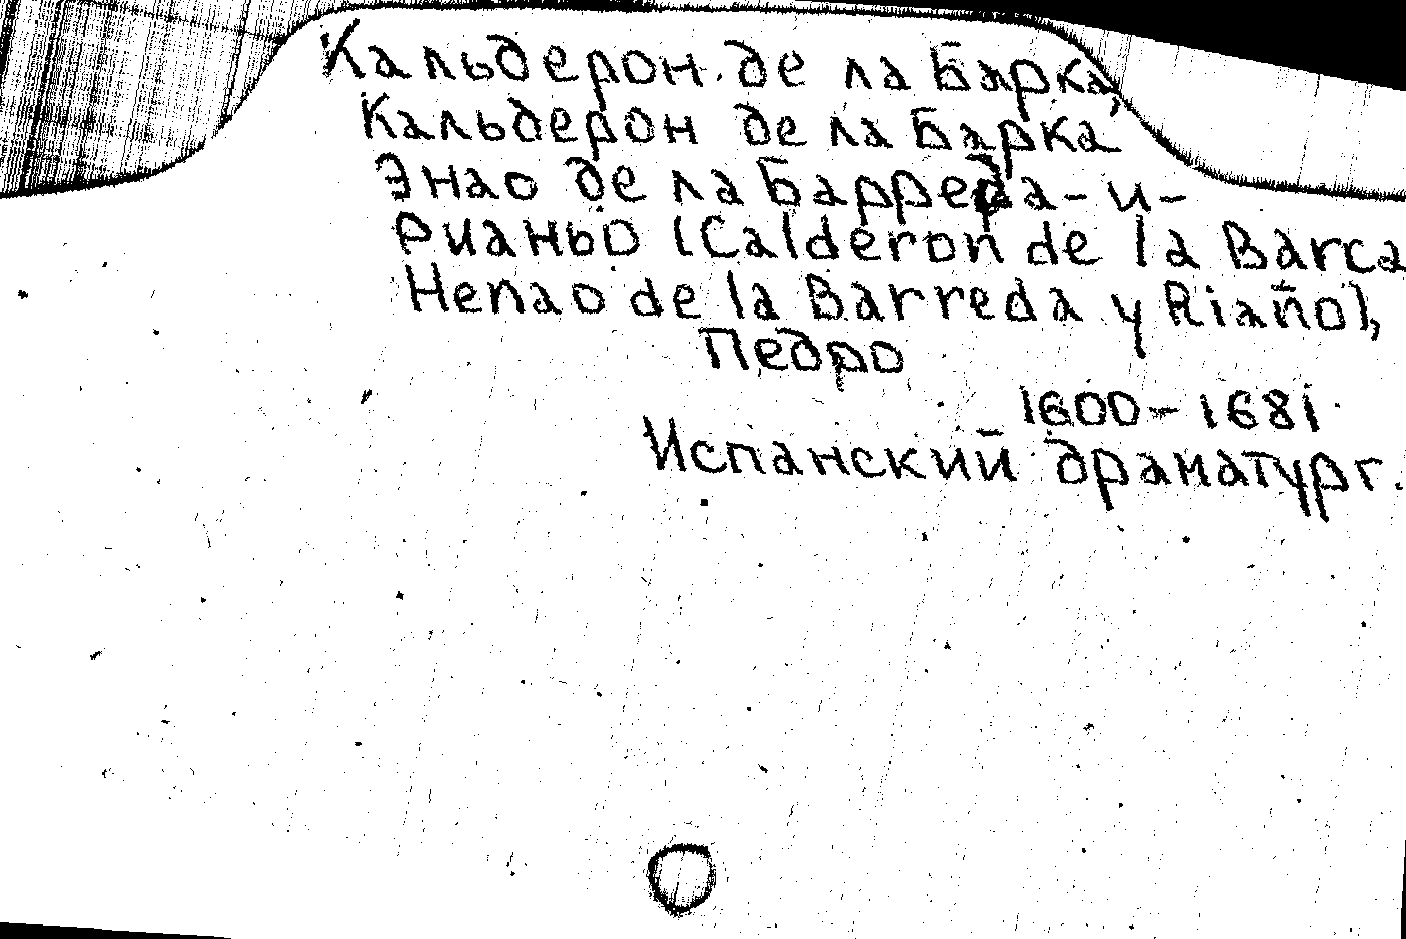 Кальдерон де ла Барка,
Кальдерон де ла Барка
Энао де ла Барреда-и-
Рианьо (Calderon de la Barca
Henao de la Barreda y Riaño),
Педро
1600-1681.
Испанский драматург.